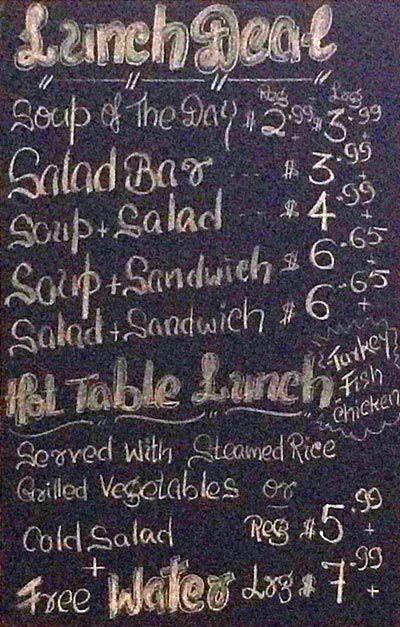 Lunch Deal
Reg Lrg
Soup of The Day $2.99+ $3.99+
Salad Bar ... $3.99+
Soup + Salad ... $4.99+
Soup + Sandwich $6.65+
Salad + Sandwich $6.65+
Hot Table Lunch
Turkey
Fish
Chicken
Served With Steamed Rice
Grilled Vegetables or
Cold Salad Reg $5.99+
+
Free Water Lrg $7.99+